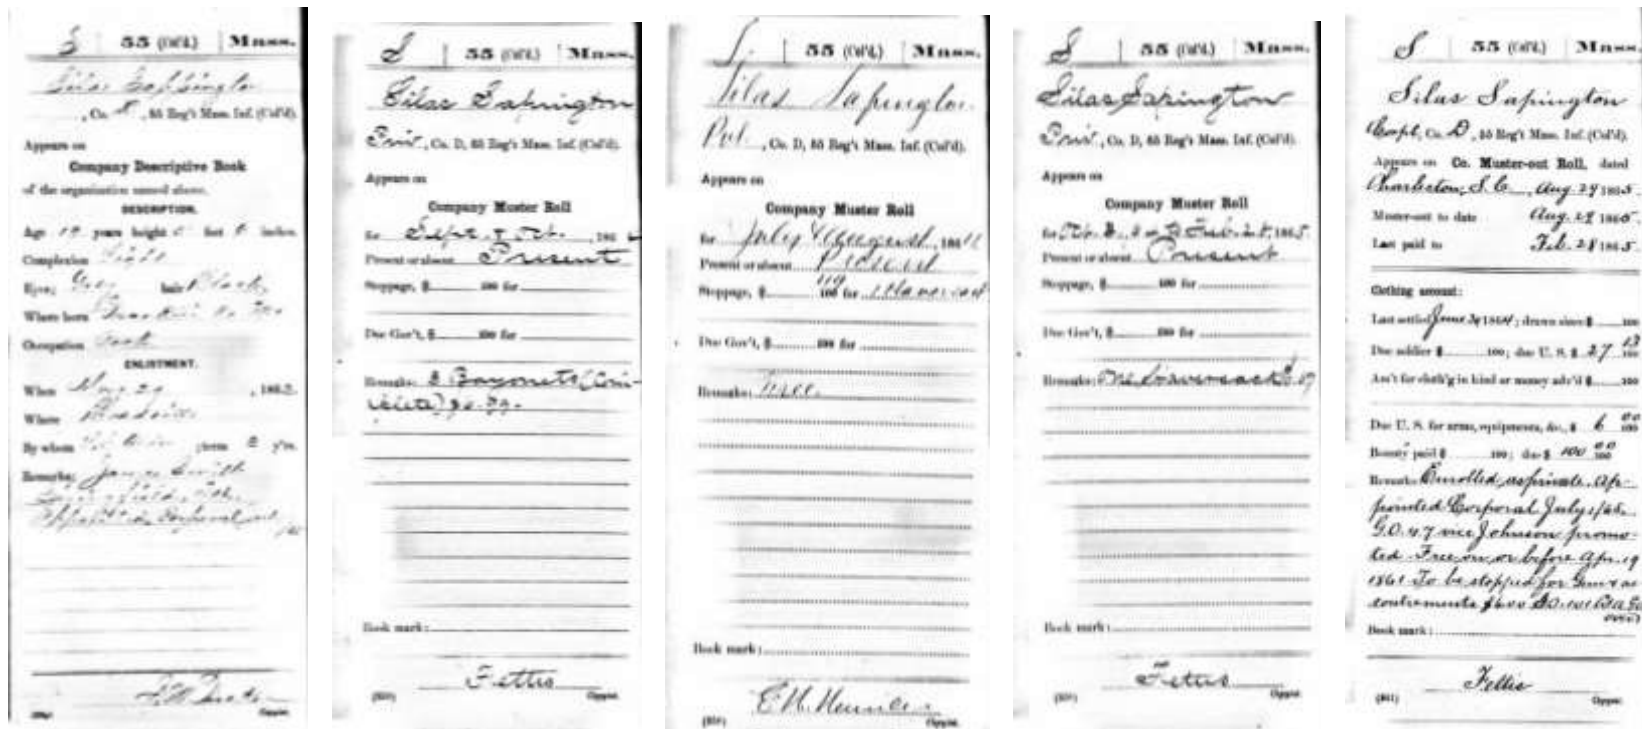 S | 55 (Col'd.) | Mass.
Silas Sappington
, Co. D, 55 Reg't Mass. Inf. (Col'd).
Appears on
Company Descriptive Book
of the organization named above.
DESCRIPTION.
Age 19 years height 5 feet 8 inches.
Complexion Light
Eyes; Grey hair Black
Where born
Occupation Cook
ENLISTMENT.
When May 29, 1863.
Where Readville
By whom ; term 3 y'rs.
Remarks:
Springfield
Appointed Corporal
Copyist.
S | 55 (Col'd.) | Mass.
Silas Sapington
Priv., Co. D, 55 Reg't Mass. Inf. (Col'd).
Appears on
Company Muster Roll
for Sept. & Oct., 186
Present or absent Present
Stoppage, $ 100 for
Due Gov't, $ 100 for
Remarks: 3 Bayonets (Com-
plete)
Book mark:
Fettis
Copyist.
S. | 55 (Col'd.) | Mass.
Silas Sapington
Pvt., Co. D, 55 Reg't Mass. Inf. (Col'd).
Appears on
Company Muster Roll
for July & August, 186
Present or absent Present
Stoppage, $ 100 for 1 Haversack
Due Gov't, $ 100 for
Remarks: Free.
Book mark:
Copyist.
S | 55 (Col'd.) | Mass.
Silas Sapington
Priv., Co. D, 55 Reg't Mass. Inf. (Col'd).
Appears on
Company Muster Roll
for Feb. 28, 1865.
Present or absent Present
Stoppage, $ 100 for
Due Gov't, $ 100 for
Remarks: One haversack
Book mark:
Fettis
Copyist.
S | 55 (Col'd.) | Mass.
Silas Sapington
Corpl, Co. D, 55 Reg't Mass. Inf. (Col'd).
Appears on Co. Muster-out Roll, dated
Charleston, S. C., Aug. 29 1865.
Muster-out to date Aug. 29 1865.
Last paid to Feb. 28 1865.
Clothing account:
Last settled June 1864; drawn since $ 100
Due soldier $ 100; due U. S. $ 27 13/100
Am't for cloth'g in kind or money adv'd $ 100
Due U. S. for arms, equipments, &c., $ 6 00/100
Bounty paid $ 100; due $ 100 00/100
Remarks: Enrolled as private. Ap-
pointed Corporal July 1/65
G.O. 47 vice Johnson promo-
ted. Free on or before Apr. 19
1861 To be stopped for Gun & ac-
coutrements $6.00
Book mark:
Fettis
Copyist.